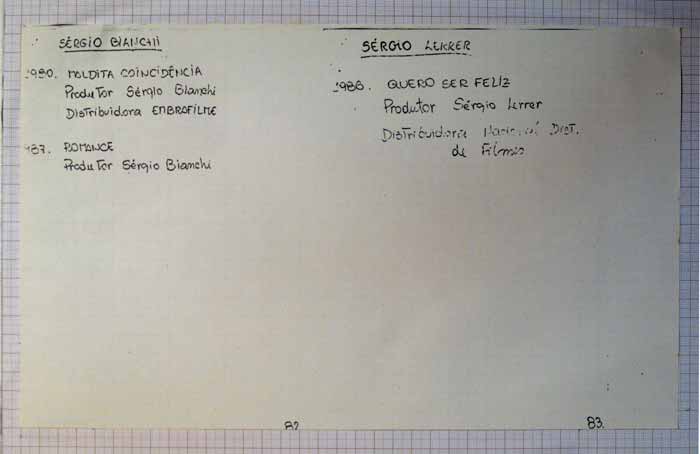 SÉRGIO BIANCHI
1980. MALDITA COINCIDÊNCIA
Produtor Sérgio Bianchi
Distribuidora EMBRAFILME
987. ROMANCE
Produtor Sérgio Bianchi
82
SÉRGIO LERRER
1986. QUERO SER FELIZ
Produtor Sérgio Lerrer
Distribuidora Nacional Dist.
de Filmes
83.